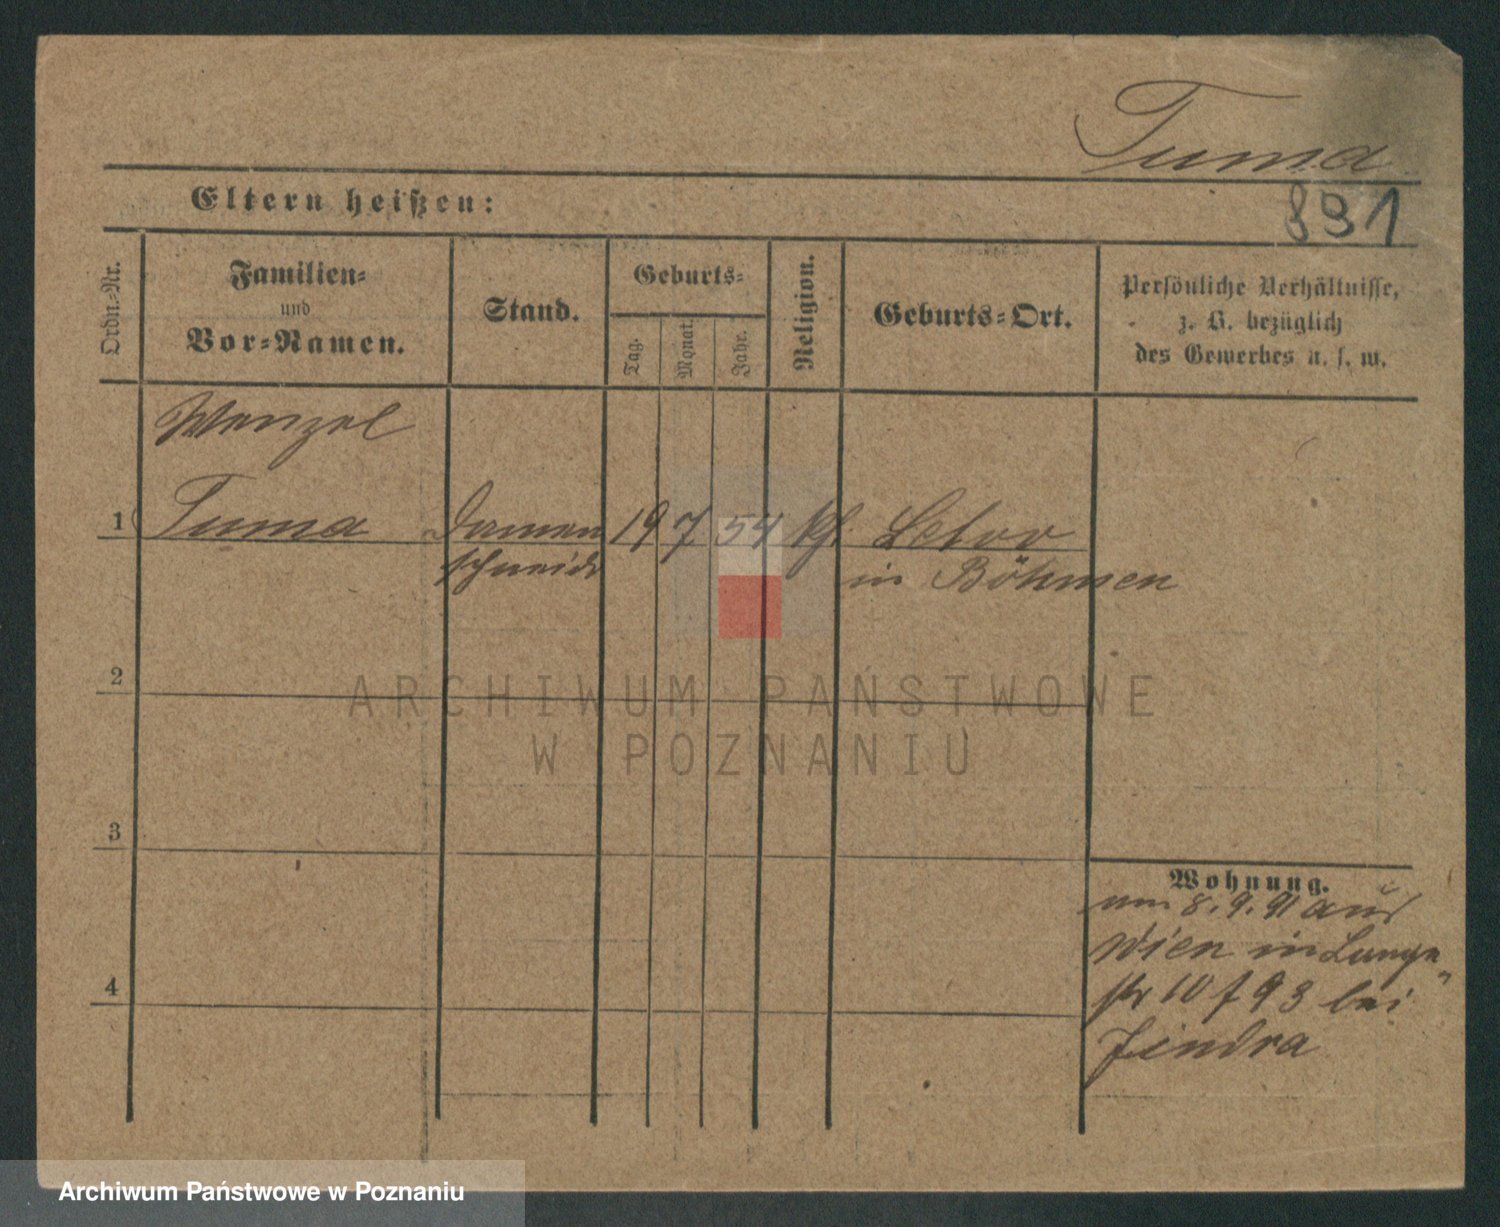 Tuma
891
Eltern heißen:
Ordn.-Nr.
Familien-
und
Vor-Namen.
Stand.
Geburts-
Tag.
Monat.
Jahr.
Religion.
Geburts-Ort.
Persönliche Verhältnisse,
z. B. bezüglich
des Gewerbes u. s. w.
Wenzel
1 Tuma Damen 19 7 54 kth
schneider in Böhmen
2
ARCHIWUM PAŃSTWOWE
W POZNANIU
3
4
Wohnung.
am 8.9.91 aus
Wien in Lange
str 10 f 93 bei
Jindra
Archiwum Państwowe w Poznaniu